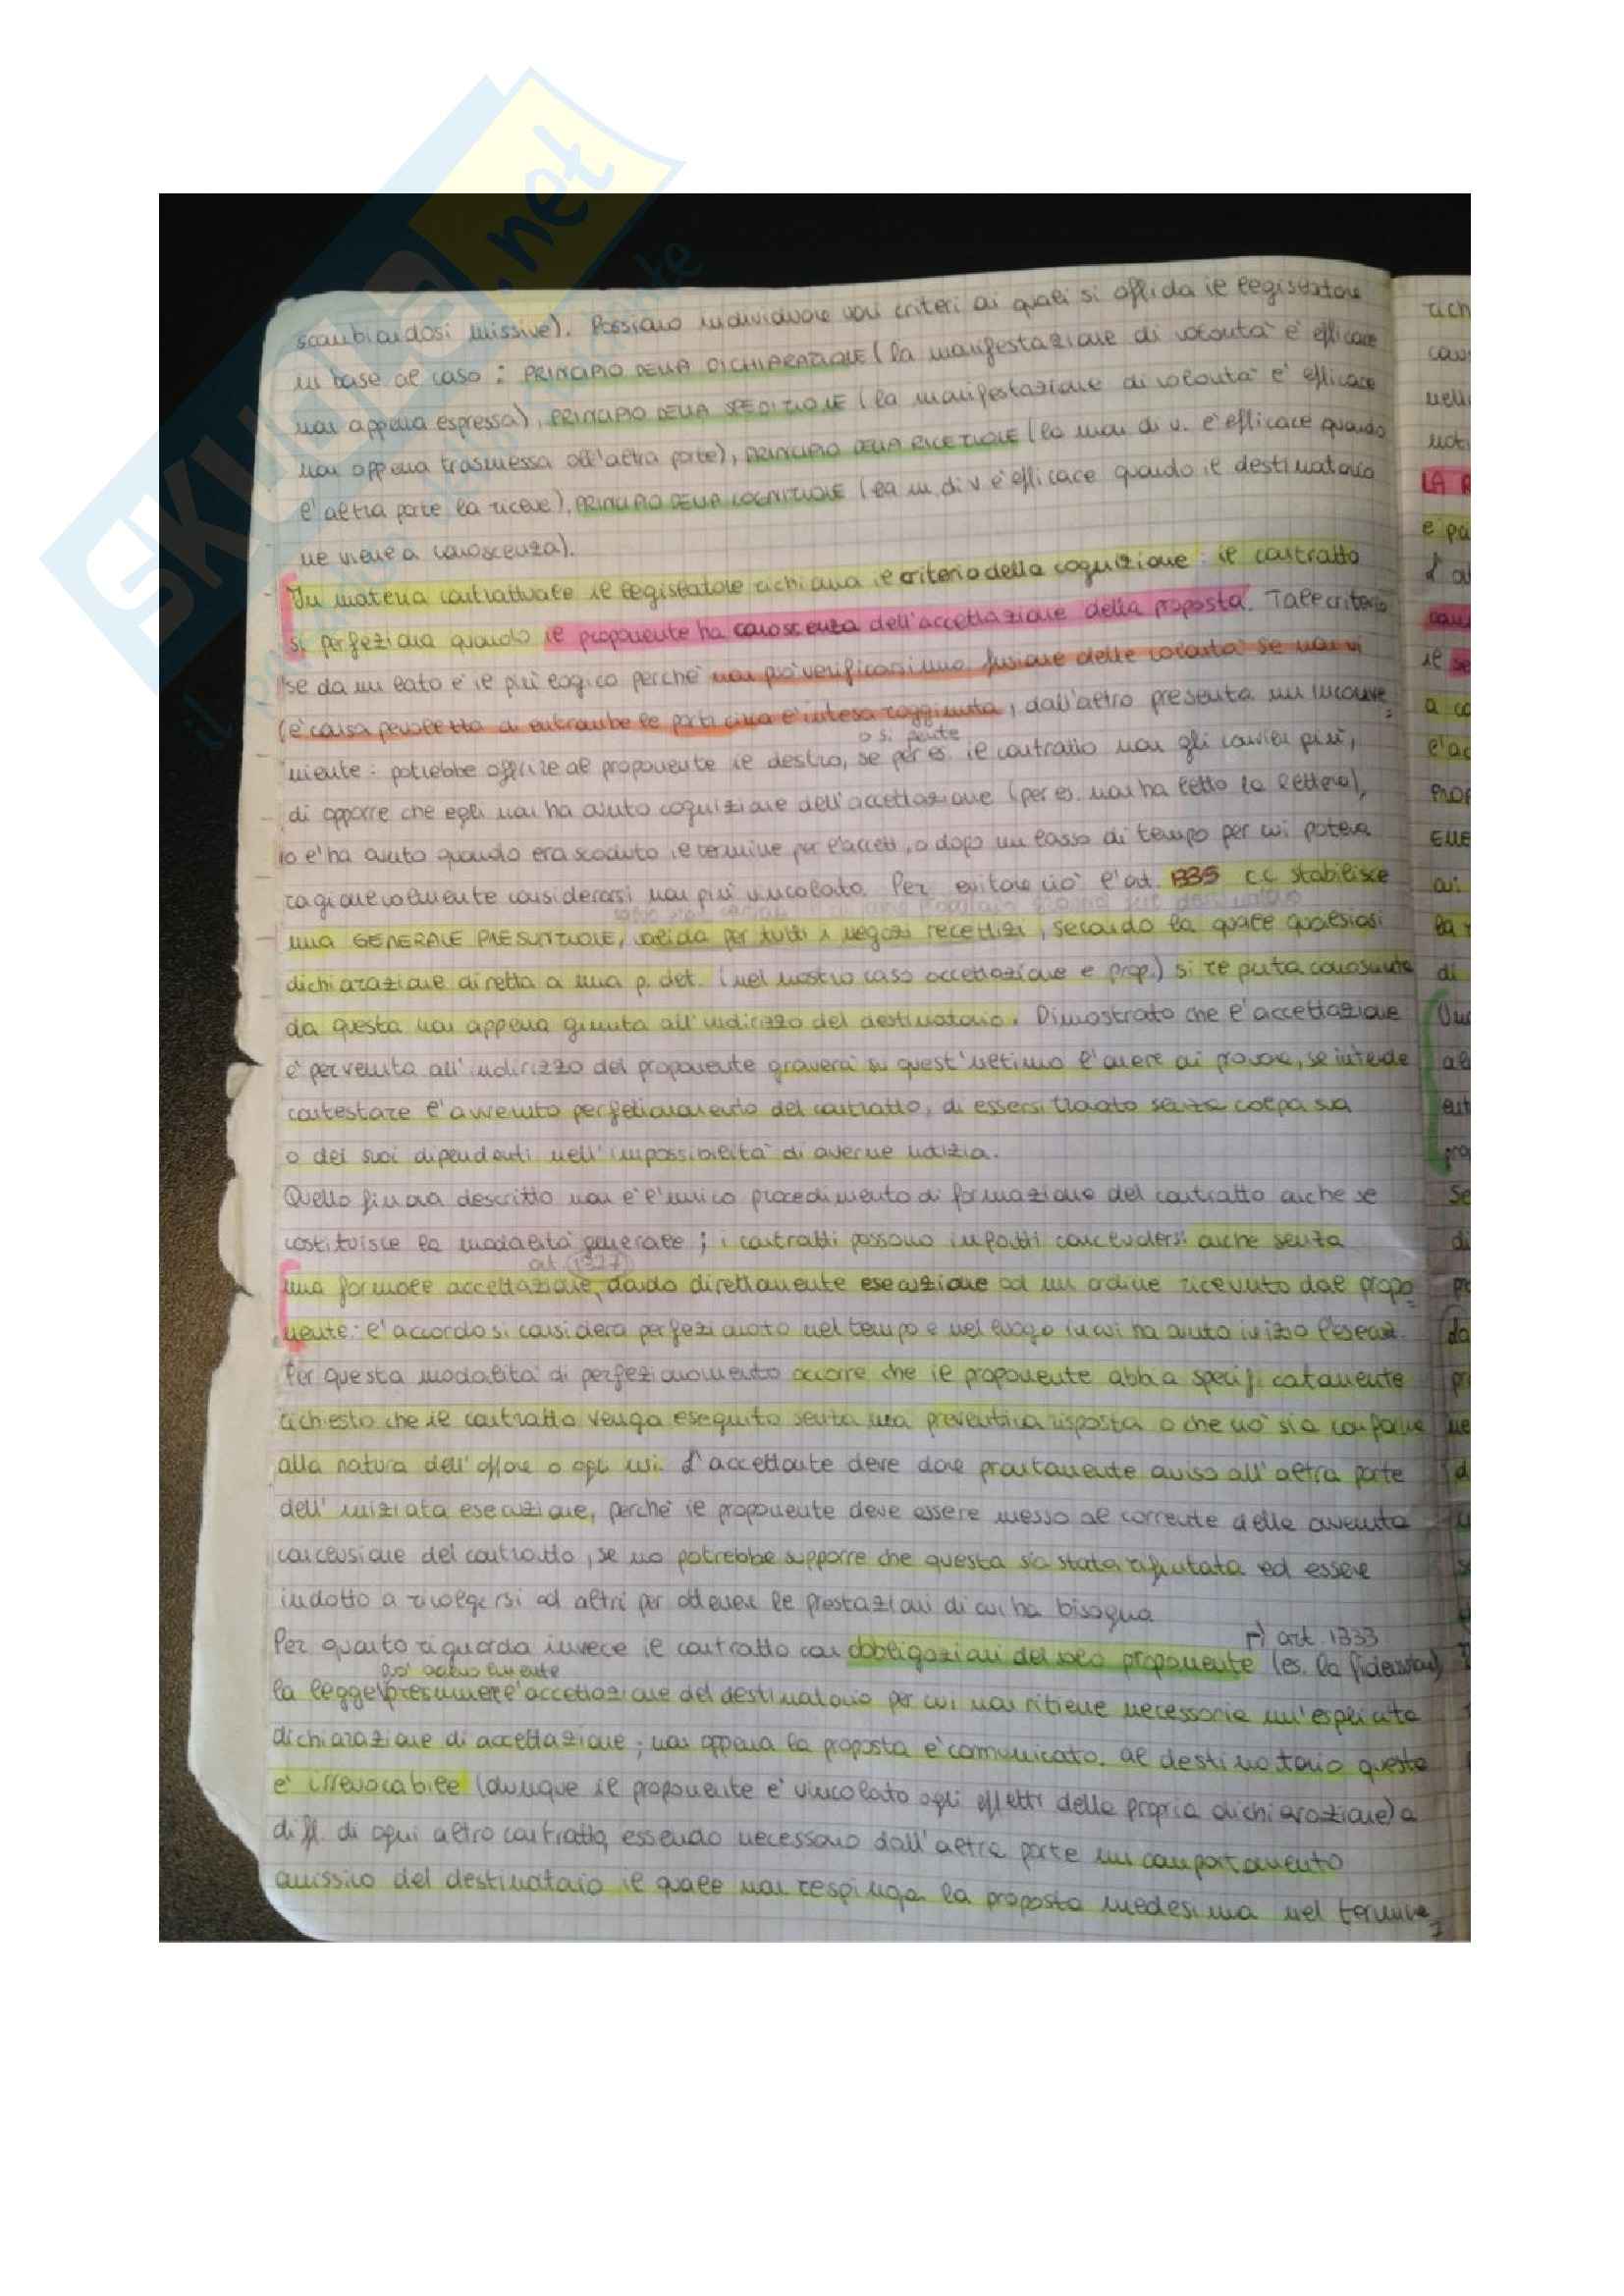 SKUOLA.net
scambiandosi missive). Possiamo individuare vari criteri ai quali si affida il legislatore
in base al caso: PRINCIPIO DELLA DICHIARAZIONE (la manifestazione di volontà è efficace
non appena espressa), PRINCIPIO DELLA SPEDIZIONE (la manifestazione di volontà è efficace
non appena trasmessa all'altra parte), PRINCIPIO DELLA RICEZIONE (la man di v. è efficace quando
l'altra parte la riceve), PRINCIPIO DELLA COGNIZIONE (la m. di v è efficace quando il destinatario
ne viene a conoscenza).
In materia contrattuale il legislatore richiama il criterio della cognizione: il contratto
si perfeziona quando il proponente ha conoscenza dell'accettazione della proposta. Tale criterio
se da un lato è il più logico perché non può verificarsi una fusione delle volontà se non vi
è consapevolezza di entrambe le parti circa l'intesa raggiunta, dall'altro presenta un inconve=
o si pente
niente: potrebbe offrire al proponente il destro, se per es. il contratto non gli convien più,
di opporre che egli non ha avuto cognizione dell'accettazione (per es. non ha letto la lettera),
o l'ha avuto quando era scaduto il termine per l'accett, o dopo un lasso di tempo per cui poteva
ragionevolmente considerarsi non più vincolato. Per evitare ciò l'art. 1335 c.c. stabilisce
una GENERALE PRESUNZIONE, valida per tutti i negozi recettizi, secondo la quale qualsiasi
dichiarazione diretta a una p. det. (nel nostro caso accettazione e prop.) si reputa conosciuta
da questa non appena giunta all'indirizzo del destinatario. Dimostrato che l'accettazione
è pervenuta all'indirizzo del proponente graverà su quest'ultimo l'onere di provare, se intende
contestare l'avvenuto perfezionamento del contratto, di essersi trovato senza colpa sua
o dei suoi dipendenti nell'impossibilità di averne notizia.
Quello finora descritto non è l'unico procedimento di formazione del contratto anche se
costituisce la modalità generale; i contratti possono infatti concludersi anche senza
art. (1327)
una formale accettazione, dando direttamente esecuzione ad un ordine ricevuto dal propo=
nente: l'accordo si considera perfezionato nel tempo e nel luogo in cui ha avuto inizio l'esecuz.
Per questa modalità di perfezionamento occorre che il proponente abbia specificatamente
richiesto che il contratto venga eseguito senza una preventiva risposta o che ciò sia conforme
alla natura dell'affare o agli usi. L'accettante deve dare prontamente avviso all'altra parte
dell'iniziata esecuzione, perché il proponente deve essere messo al corrente della avvenuta
conclusione del contratto, se no potrebbe supporre che questa sia stata rifiutata ed essere
indotto a rivolgersi ad altri per ottenere le prestazioni di cui ha bisogno
r) art. 1333
Per quanto riguarda invece il contratto con obbligazioni del solo proponente (es. la fideiussione)
la legge presume l'accettazione del destinatario per cui non ritiene necessaria un'esplicita
dichiarazione di accettazione; non appena la proposta è comunicata al destinatario questa
è irrevocabile (dunque il proponente è vincolato agli effetti della propria dichiarazione) a
diff. di ogni altro contratto, essendo necessario dall'altra parte un comportamento
omissivo del destinatario il quale non respinga la proposta medesima nel termine